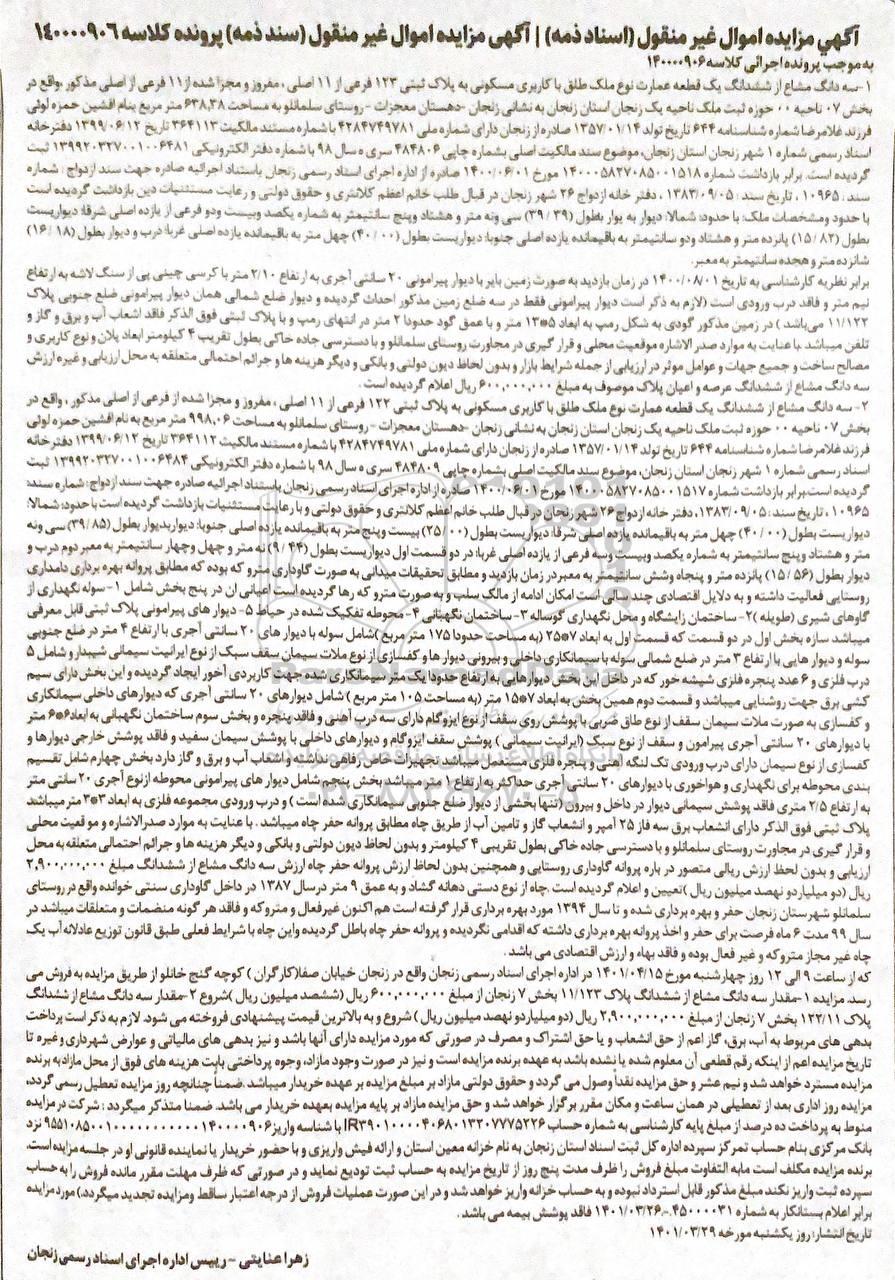 آگهي مزایده اموال غیر منقول (اسناد ذمه) | آگهی مزایده اموال غیر منقول (سند ذمه) پرونده کلاسه ۱۴۰۰۰۰۹۰۶
به موجب پرونده اجرائی کلاسه ۱۴۰۰۰۰۹۰۶
۱-سه دانگ مشاع از ششدانگ یک قطعه عمارت نوع ملک طلق با کاربری مسکونی به پلاک ثبتی ۱۲۳ فرعی از ۱۱ اصلی ، مفروز و مجزا شده از۱۱ فرعی از اصلی مذکور ،واقع در
بخش ۰۷ ناحیه ۰۰ حوزه ثبت ملک ناحیه یک زنجان استان زنجان به نشانی زنجان -دهستان معجزات - روستای سلمانلو به مساحت ۶۳۸,۳۸ متر مربع بنام افشین حمزه لوئی
فرزند غلامرضا شماره شناسنامه ۶۴۴ تاریخ تولد ۱۳۵۷/۰۱/۱۴ صادره از زنجان دارای شماره ملی ۴۲۸۴۷۴۹۷۸۱ با شماره مستند مالکیت ۳۶۴۱۱۳ تاریخ ۱۳۹۹/۰۶/۱۲ دفترخانه
اسناد رسمی شماره ۱ شهر زنجان استان زنجان، موضوع سند مالکیت اصلی بشماره چاپی ۴۸۴۸۰۶ سری ه سال ۹۸ با شماره دفتر الکترونیکی ۱۳۹۹۲۰۳۲۷۰۰۱۰۰۶۴۸۱ ثبت
گردیده است. برابر بازداشت شماره ۱۴۰۰۰۵۸۲۷۰۸۵۰۰۱۵۱۸ مورخ ۱۴۰۰/۰۶/۰۱ صادره از اداره اجرای اسناد رسمی زنجان باستناد اجرائیه صادره جهت سند ازدواج : شماره
سند : ۱۰۹۶۵ ، تاریخ سند : ۱۳۸۳/۰۹/۰۵ ، دفتر خانه ازدواج ۲۶ شهر زنجان در قبال طلب خانم اعظم کلانتری و حقوق دولتی و رعایت مستثنیات دین بازداشت گردیده است
با حدود ومشخصات ملک: با حدود: شمالا: دیوار به یوار بطول (۳۹/ ۳۹) سی ونه متر و هشتاد وپنج سانتیمتر به شماره یکصد وبیست ودو فرعی از یازده اصلی شرقا: دیواریست
بطول (۸۲/ ۱۵) پانزده متر و هشتاد ودو سانتیمتر به باقیمانده یازده اصلی جنوبا: دیواریست بطول (۰۰/ ۴۰) چهل متر به باقیمانده یازده اصلی غربا: درب و دیوار بطول (۱۸/ ۱۶)
شانزده متر و هجده سانتیمتر به معبر.
برابر نظریه کارشناسی به تاریخ ۱۴۰۰/۰۸/۰۱ در زمان بازدید به صورت زمین بایر با دیوار پیرامونی ۲۰ سانتی آجری به ارتفاع ۲/۱۰ متر با کرسی چینی پی از سنگ لاشه به ارتفاع
نیم متر و فاقد درب ورودی است (لازم به ذکر است دیوار پیرامونی فقط در سه ضلع زمین مذکور احداث گردیده و دیوار ضلع شمالی همان دیوار پیرامونی ضلع جنوبی پلاک
۱۱/۱۲۲ می‌باشد ) در زمین مذکور گودی به شکل رمپ به ابعاد ۵*۱۳ متر و با عمق گود حدودا ۲ متر در انتهای رمپ و با پلاک ثبتی فوق الذکر فاقد اشعاب آب و برق و گاز و
تلفن میباشد .با عنایت به موارد صدر الاشاره موقعیت محلی و قرار گیری در مجاورت روستای سلمانلو و با دسترسی جاده خاکی بطول تقریب ۴ کیلومتر ابعاد پلان و نوع کاربری و
مصالح ساخت و جمیع جهات و عوامل موثر در ارزیابی از جمله شرایط بازار و بدون لحاظ دیون دولتی و بانکی و دیگر هزینه ها و جرائم احتمالی متعلقه به محل ارزیابی و غیره ارزش
سه دانگ مشاع از ششدانگ عرصه و اعیان پلاک موصوف به مبلغ ۶۰۰,۰۰۰,۰۰۰ ریال اعلام گردیده است .
۲- سه دانگ مشاع از ششدانگ یک قطعه عمارت نوع ملک طلق با کاربری مسکونی به پلاک ثبتی ۱۲۲ فرعی از ۱۱ اصلی ، مفروز و مجزا شده از فرعی از اصلی مذکور ، واقع در
بخش ۰۷ ناحیه ۰۰ حوزه ثبت ملک ناحیه یک زنجان استان زنجان به نشانی زنجان -دهستان معجزات - روستای سلمانلو به مساحت ۹۹۸,۰۶ متر مربع به نام افشین حمزه لوئی
فرزند غلامرضا شماره شناسنامه ۶۴۴ تاریخ تولد ۱۳۵۷/۰۱/۱۴ صادره از زنجان دارای شماره ملی ۴۲۸۴۷۴۹۷۸۱ با شماره مستند مالکیت ۳۶۴۱۱۲ تاریخ ۱۳۹۹/۰۶/۱۲ دفترخانه
اسناد رسمی شماره ۱ شهر زنجان استان زنجان، موضوع سند مالکیت اصلی بشماره چاپی ۴۸۴۸۰۹ سری ه سال ۹۸ با شماره دفتر الکترونیکی ۱۳۹۹۲۰۳۲۷۰۰۱۰۰۶۴۸۴ ثبت
گردیده است.برابر بازداشت شماره ۱۴۰۰۰۵۸۲۷۰۸۵۰۰۱۵۱۷ مورخ ۱۴۰۰/۰۶/۰۱ صادره از اداره اجرای اسناد رسمی زنجان باستناد اجرائیه صادره جهت سند ازدواج: شماره سند:
۱۰۹۶۵، تاریخ سند: ۱۳۸۳/۰۹/۰۵، دفتر خانه ازدواج ۲۶ شهر زنجان در قبال طلب خانم اعظم کلانتری و حقوق دولتی و با رعایت مستثنیات بازداشت گردیده است با حدود: شمالا:
دیواریست بطول (۰۰/ ۴۰) چهل متر به باقیمانده یازده اصلی شرقا: دیواریست بطول (۰۰/ ۲۵) بیست وپنج متر به باقیمانده یازده اصلی جنوبا: دیواربدیوار بطول (۸۵/ ۳۹) سی ونه
متر و هشتاد وپنج سانتیمتر به شماره یکصد وبیست وسه فرعی از یازده اصلی غربا: در دو قسمت اول دیواریست بطول (۴۴/ ۹) نه متر و چهل وچهار سانتیمتر به معبر دوم درب و
دیوار بطول (۵۶/ ۱۵) پانزده متر و پنجاه وشش سانتیمتر به معبر در زمان بازدید و مطابق تحقیقات میدانی به صورت گاوداری مترو که بوده که مطابق پروانه بهره برداری دامداری
روستایی فعالیت داشته و به دلایل اقتصادی چند سالی است امکان ادامه از مالک سلب و به صورت مترو که رها گردیده است اعیانی ان در پنج بخش شامل ۱-سوله نگهداری از
گاوهای شیری (طویله )۲- ساختمان زایشگاه و محل نگهداری گوساله ۳-ساختمان نگهبانی ۴-محوطه تفکیک شده در حیاط ۵- دیوار های پیرامونی پلاک ثبتی قابل معرفی
میباشد سازه بخش اول در دو قسمت که قسمت اول به ابعاد ۷*۲۵ (به مساحت حدودا ۱۷۵ متر مربع )شامل سوله با دیوار های ۲۰ سانتی آجری با ارتفاع ۴ متر در ضلع جنوبی
سوله و دیوار هایی با ارتفاع ۳ متر در ضلع شمالی سوله با سیمانکاری داخلی و بیرونی دیوار ها و کفسازی از نوع ملات سیمان سقف سبک از نوع ایرانیت سیمانی شیبدار و شامل ۵
درب فلزی و ۶ عدد پنجره فلزی شیشه خور که در داخل این بخش دیوارهایی به ارتفاع حدودا یک متر سیمانکاری شده جهت کاربردی آخور ایجاد گردیده و این بخش دارای سیم
کشی برق جهت روشنایی میباشد و قسمت دوم همین بخش به ابعاد ۷*۱۵ متر (به مساحت ۱۰۵ متر مربع ) شامل دیوارهای ۲۰ سانتی آجری که دیوارهای داخلی سیمانکاری
و کفسازی به صورت ملات سیمان سقف از نوع طاق ضربی با پوشش روی سقف از نوع ایزوگام دارای سه درب آهنی و فاقد پنجره و بخش سوم ساختمان نگهبانی به ابعاد۶*۶ متر
با دیوارهای ۲۰ سانتی آجری پیرامون و سقف از نوع سبک (ایرانیت سیمانی ) پوشش سقف ایزوگام و دیوارهای داخلی با پوشش سیمان سفید و فاقد پوشش خارجی دیوارها و
کفسازی از نوع سیمان دارای درب ورودی تک لنگه آهنی و پنجره فلزی مستعمل میباشد تجهیزات خاص رفاهی نداشته و اشعاب آب و برق و گاز دارد بخش چهارم شامل تقسیم
بندی محوطه برای نگهداری و هواخوری با دیوارهای ۲۰ سانتی آجری حداکثر به ارتفاع ۱ متر میباشد بخش پنجم شامل دیوار های پیرامونی محوطه ازنوع آجری ۲۰ سانتی متر
به ارتفاع ۲/۵ متری فاقد پوشش سیمانی دیوار در داخل و بیرون (تنها بخشی از دیوار ضلع جنوبی سیمانکاری شده است ) و درب ورودی مجموعه فلزی به ابعاد ۳*۳ متر میباشد
پلاک ثبتی فوق الذکر دارای انشعاب برق سه فاز ۲۵ آمپر و انشعاب گاز و تامین آب از طریق چاه مطابق پروانه حفر چاه میباشد . با عنایت به موارد صدرالاشاره و موقعیت محلی
و قرار گیری در مجاورت روستای سلمانلو و با دسترسی جاده خاکی بطول تقریبی ۴ کیلومتر و بدون لحاظ دیون دولتی و بانکی و دیگر هزینه ها و جرائم احتمالی متعلقه به محل
ارزیابی و بدون لحظ ارزش ریالی متصور در باره پروانه گاوداری روستایی و همچنین بدون لحاظ ارزش پروانه حفر چاه ارزش سه دانگ مشاع از ششدانگ مبلغ ۲,۹۰۰,۰۰۰,۰۰۰
ریال (دو میلیاردو نهصد میلیون ریال )تعیین و اعلام گردیده است .چاه از نوع دستی دهانه گشاد و به عمق ۹ متر درسال ۱۳۸۷ در داخل گاوداری سنتی خوانده واقع در روستای
سلمانلو شهرستان زنجان حفر و بهره برداری شده و تا سال ۱۳۹۴ مورد بهره برداری قرار گرفته است هم اکنون غیرفعال و متروکه و فاقد هر گونه منضمات و متعلقات میباشد در
سال ۹۹ مدت ۶ ماه فرصت برای حفر و اخذ پروانه بهره برداری داشته که اقدامی نگردیده و پروانه حفر چاه باطل گردیده واین چاه با شرایط فعلی طبق قانون توزیع عادلانه آب یک
چاه غیر مجاز متروکه و غیر فعال بوده و فاقد بهاء و ارزش اقتصادی می باشد .
که از ساعت ۹ الی ۱۲ روز چهارشنبه مورخ ۱۴۰۱/۰۴/۱۵ در اداره اجرای اسناد رسمی زنجان واقع در زنجان خیابان صفا(کارگران ) کوچه گنج خانلو از طریق مزایده به فروش می
رسد. مزایده ۱-مقدار سه دانگ مشاع از ششدانگ پلاک ۱۱/۱۲۳ بخش ۷ زنجان از مبلغ ۶۰۰,۰۰۰,۰۰۰ ریال (ششصد میلیون ریال )شروع ۲-مقدار سه دانگ مشاع از ششدانگ
پلاک ۱۲۲/۱۱ بخش ۷ زنجان از مبلغ ۲,۹۰۰,۰۰۰,۰۰۰ ریال (دو میلیاردو نهصد میلیون ریال ) شروع و به بالاترین قیمت پیشنهادی فروخته می شود. لازم به ذکر است پرداخت
بدهی های مربوط به آب، برق، گاز اعم از حق انشعاب و یا حق اشتراک و مصرف در صورتی که مورد مزایده دارای آنها باشد و نیز بدهی های مالیاتی و عوارض شهرداری وغیره تا
تاریخ مزایده اعم از اینکه رقم قطعی آن معلوم شده یا نشده باشد به عهده برنده مزایده است و نیز در صورت وجود مازاد، وجوه پرداختی بابت هزینه های فوق از محل مازاد به برنده
مزایده مسترد خواهد شد و نیم عشر و حق مزایده نقداً وصول می گردد و حقوق دولتی مازاد بر مبلغ مزایده بر عهده خریدار میباشد. ضمناً چنانچه روز مزایده تعطیل رسمی گردد،
مزایده روز اداری بعد از تعطیلی در همان ساعت و مکان مقرر برگزار خواهد شد و حق مزایده مازاد بر پایه مزایده بعهده خریدار می باشد. ضمنا متذکر میگردد : شرکت در مزایده
منوط به پرداخت ده درصد از مبلغ پایه کارشناسی به شماره حساب IR۳۹۰۱۰۰۰۰۴۰۶۸۰۱۳۲۰۷۷۷۵۲۲۶ با شناسه واریز نزد
بانک مرکزی بنام حساب تمرکز سپرده اداره کل ثبت اسناد استان زنجان به نام خزانه معین استان و ارائه فیش واریزی و با حضور خریدار یا نماینده قانونی او در جلسه مزایده است.
برنده مزایده مکلف است مابه التفاوت مبلغ فروش را ظرف مدت پنج روز از تاریخ مزایده به حساب ثبت تودیع نماید و در صورتی که ظرف مهلت مقرر مانده فروش را به حساب
سپرده ثبت واریز نکند مبلغ مذکور قابل استرداد نبوده و به حساب خزانه واریز خواهد شد و در این صورت عملیات فروش از درجه اعتبار ساقط ومزایده تجدید میگردد) مورد مزایده
برابر اعلام بستانکار به شماره ۴۵۰۰۰۰۳۱-۱۴۰۱/۰۳/۲۶ فاقد پوشش بیمه می باشد .
تاریخ انتشار: روز یکشنبه مورخه ۱۴۰۱/۰۳/۲۹
زهرا عنایتی - رییس اداره اجرای اسناد رسمی زنجان